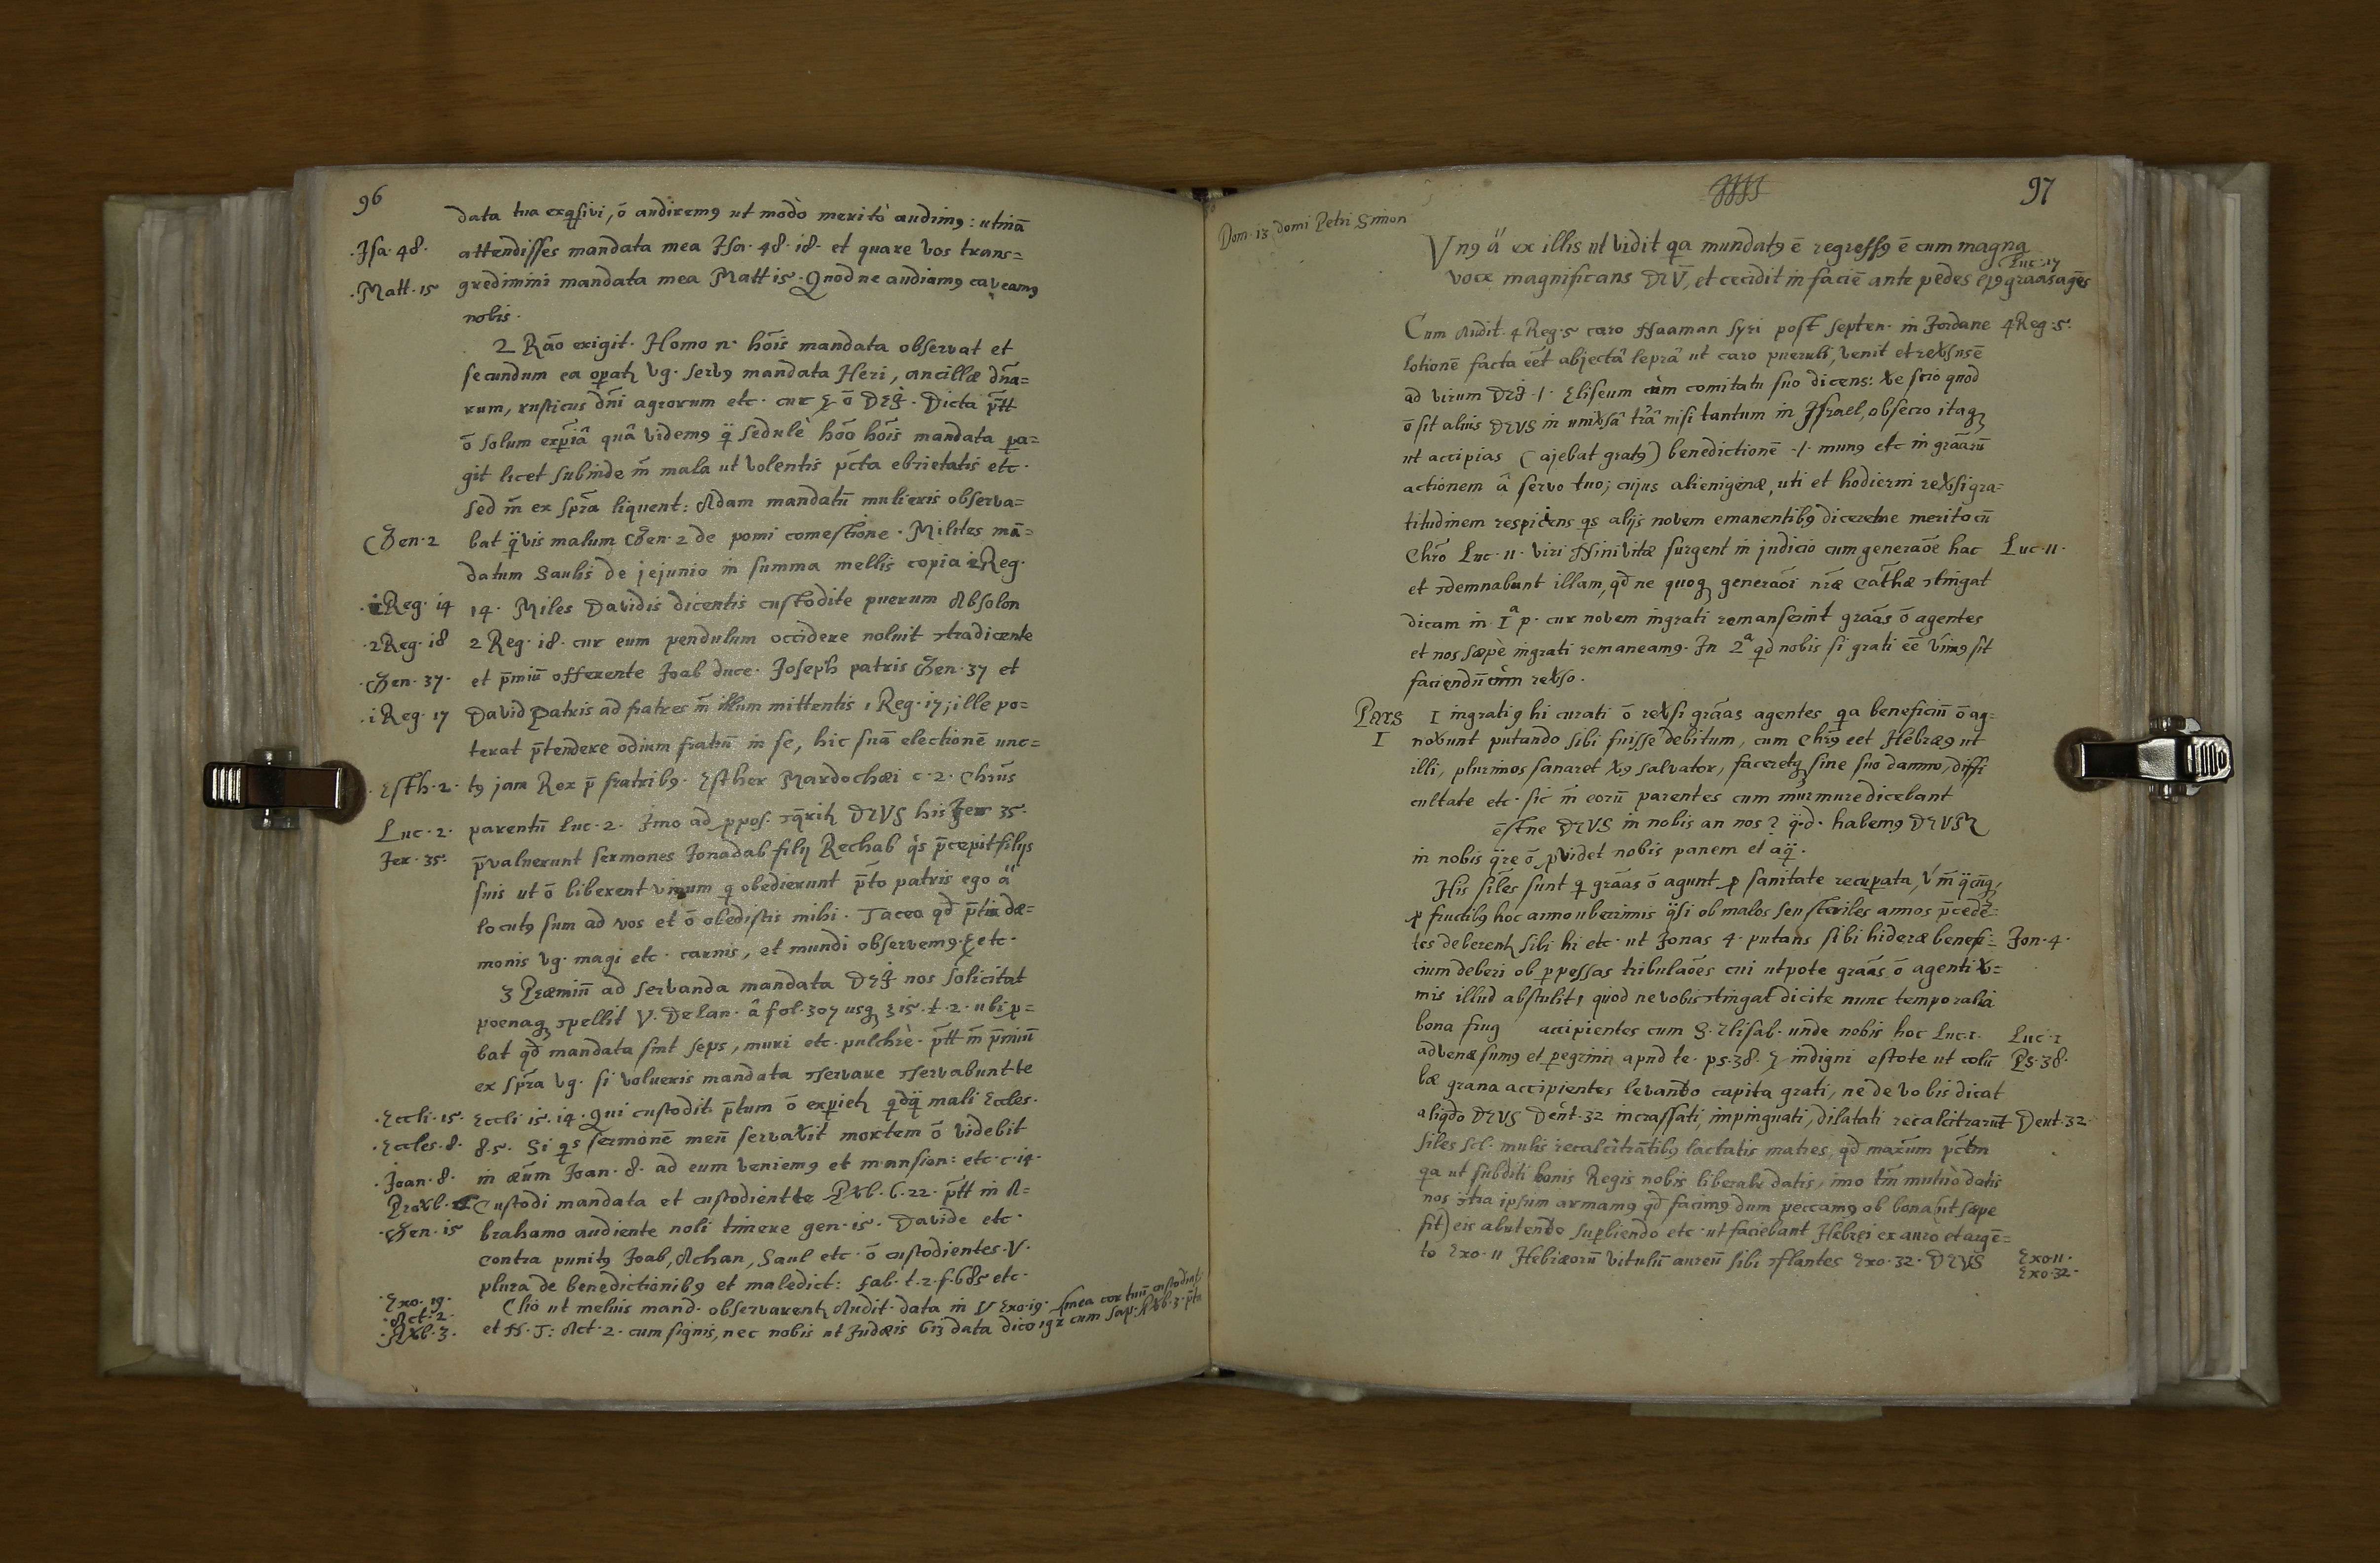 96
data tua exqsivi, ō audiremꝰ ut modò meritò audimꝰ: utinā
·Jsa· 48· attendisses mandata mea Jsa· 48· i8· et quare vos trans=
·Matt· 15 gredimini mandata mea Matt is· Quod ne audiamꝰ caveamꝰ
nobis·
2 Rāo exigit· Homo n· hōis mandata observat et
secundum ea opatr vg· servꝰ mandata Heri, ancillæ dn̄a=
rum, rusticus dn̄i agrorum etc· cur ō DEI· Dicta p̄tt
ō solum exp̄iâ quâ videmꝰ sedulè hōo hōis mandata pa=
git licet subinde m̄ mala ut volentis p̄cta ebrietatis etc·
sed m̄ ex sp̄ra liquent: Adam mandatū mulieris observa=
Gen· 2 bat q̈vis malum Gen· 2 de pomi comestione· Milites mā=
datum Saulis de jejunio in summa mellis copia i Reg·
·i Reg· i4 14· Miles Davidis dicentis custodite puerum Absolon
·2 Reg· i8 2 Reg· i8· cur eum pendulum occidere noluit ꝯtradicente
·Gen· 37· et p̄miū offerente Joab duce· Joseph patris Gen· 37 et
·i Reg· 17 David Patris ad fratres m̄ illum mittentis 1 Reg· i7; ille po=
terat p̄tendere odium fratrū in se, hic suā electionē unc=
·Esth· 2· tꝰ jam Rex p̄ fratribꝰ· Esther Mardochæi c· 2· Chrūs
Luc· 2· parentū Luc· 2· Jmo ad ppos· ꝯq̄ritr DEVS his Jer 35·
Jer· 35: p̄valuerunt sermones Jonadab filij Rechab qs p̄cepit filijs
suis ut ō biberent vinum q obedierunt p̄to patris ego ä
locutꝰ sum ad vos et ō obedistis mihi· Taceo qd̄ p̄tia dæ=
monis vg· magi etc· carnis, et mundi observemꝰ etc·
3 Præmiū ad servanda mandata DEI nos solicitat
poenaq ꝯpellit V· De lan· â fol· 307 usq 3i5· t· 2· ubi p=
bat qd̄ mandata sint seps, muri etc· pulchrè· p̄tt m̄ p̄miū
ex sp̄ra vg· si volueris mandata ꝯservare ꝯservabunt te
·Eccli· 15· Eccli i5· i4· Qui custodit p̄tum ō expietr qdq̄ mali Eccles·
·Eccles· 8· 8· 5· Si qs sermonē meū servaverit mortem ō videbit
·Joan· 8· in æūm Joan· 8· ad eum veniemꝰ et mansion: etc· c· i4·
Provb· Custodi mandata et custodient te Pvb· 6· 22· p̄tt in A=
·Gen· i5 brahamo audiente noli timere gen· i5· Davide etc·
contra punitꝰ Joab, Achan, Saul etc· ō custodientes· V·
plura de benedictionibꝰ et maledict: fab· t· 2· f· 685 etc·
·Exo· 19· Clio ut melius mand· observarentr Audit· data in V Exo· i9·
·Act· 2· et N· T: Act· 2· cum signis, nec nobis ut Judæis 613 data dico igr cum Sap·
97
Dom· 13 domi Petri Simon
Vnꝰ ä ex illis ut vidit qa mundatꝰ ē regressꝰ ē cum magna
Luc· 17
voce magnificans DEV̄, et cecidit in faciē ante pedes ejꝰ graas agēs
Cum Audit· 4 Reg· 5 caro Naaman Syri post septen· in Jordane 4 Reg· 5·
lotionē facta eēt abjectâ leprâ ut caro pueruli, venit et
ad virum DEI ·/· Eliseum cùm comitatu suo dicens: Ve scio quod
ō sit alius DEVS in univsâ tr̄â nisi tantum in Jsrael, obsecro itaq
ut accipias (ajebat gratꝰ) benedictionē ·/· munꝰ etc in graārū
actionem â servo tuo; cujus alienigenæ, uti et hodierni revsi gra=
titudinem respiciens qs alijs novem emanentibꝰ diceretne merito cū
Chrō Luc· 11· viri Ninivitæ surgent in judicio cum generaōe hac Luc· 11·
et ꝯdemnabunt illam, qd̄ ne quoq generaōi nr̄æ Cath̄æ ꝯtingat
dicam in Iᵃ p· cur novem ingrati remanserint graās ō agentes
et nos sæpè ingrati remaneamꝰ· In 2ᵃ qd nobis si grati eē vimꝰ sit
faciendū
Pars I I ingrati hi curati ō revsi graās agentes qa beneficiū ō ag=
novunt putando sibi fuisse debitum, cum Chrꝰ eet Hebræꝰ ut
illi, plurimos sanaret salvator, faceretq sine suo damno, diffi
cultate etc· sic m̄ eorū parentes cum murmure dicebant
ēstne DEVS in nobis an nos? q̈·d· habemꝰ DEVM
in nobis q̈re ō pvidet nobis panem et aq̈·
His siles sunt q graās ō agunt p sanitate recupata,
p fructibꝰ hoc anno uberrimis q̈si ob malos seu steriles annos p̄cedē=
tes deberentr sibi hi etc· ut Jonas 4· putans sibi hideræ benefi= Jon· 4·
cium deberi ob ppessas tribulaōes cui utpote graās ō agenti v=
mis illud abstulit, quod ne vobis ꝯtingat dicite nunc temporalia
bona accipientes cum S· Elisab· unde nobis hoc Luc· 1· Luc· 1
advenæ sumꝰ et pegrini apud te· ps· 38· indigni estote ut colū Ps· 38·
bæ grana accipientes levando capita grati, ne de vobis dicat
aliqdo DEVS Deūt· 32 incrassati, impinguati, dilatati recalcitrarūt Deut· 32·
siles scl· mulis recalcitrātibꝰ lactatis matres, qd̄ maxūm p̄ctm
qa ut subditi bonis Regis nobis liberalr datis, imo tm̄ mutuò datis
nos ꝯtra ipsum armamꝰ qd̄ facimꝰ dum peccamꝰ ob bona (ut sæpe
fit) eis abutendo supbiendo etc· ut faciebant Hebrei ex auro et argē=
to Exo· 11 Hebræorū vitulū aureū sibi ꝯflantes Exo· 32· DEVS Exo 11·
Exo· 32·